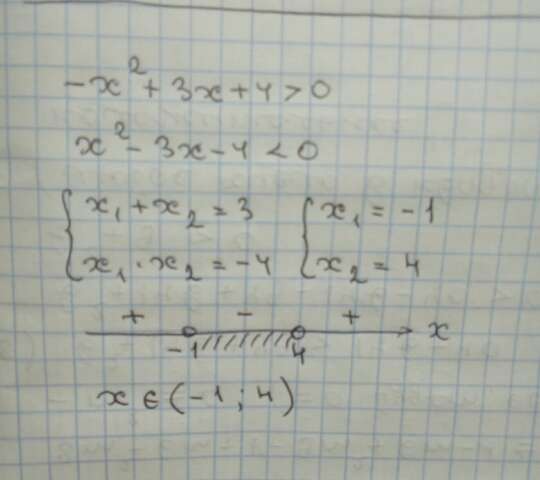 -x² + 3x + 4 > 0
x² - 3x - 4 < 0
{ x₁ + x₂ = 3 { x₁ = -1
x₁ · x₂ = -4 x₂ = 4
+ - +
-1 4 x
x ∈ (-1; 4)